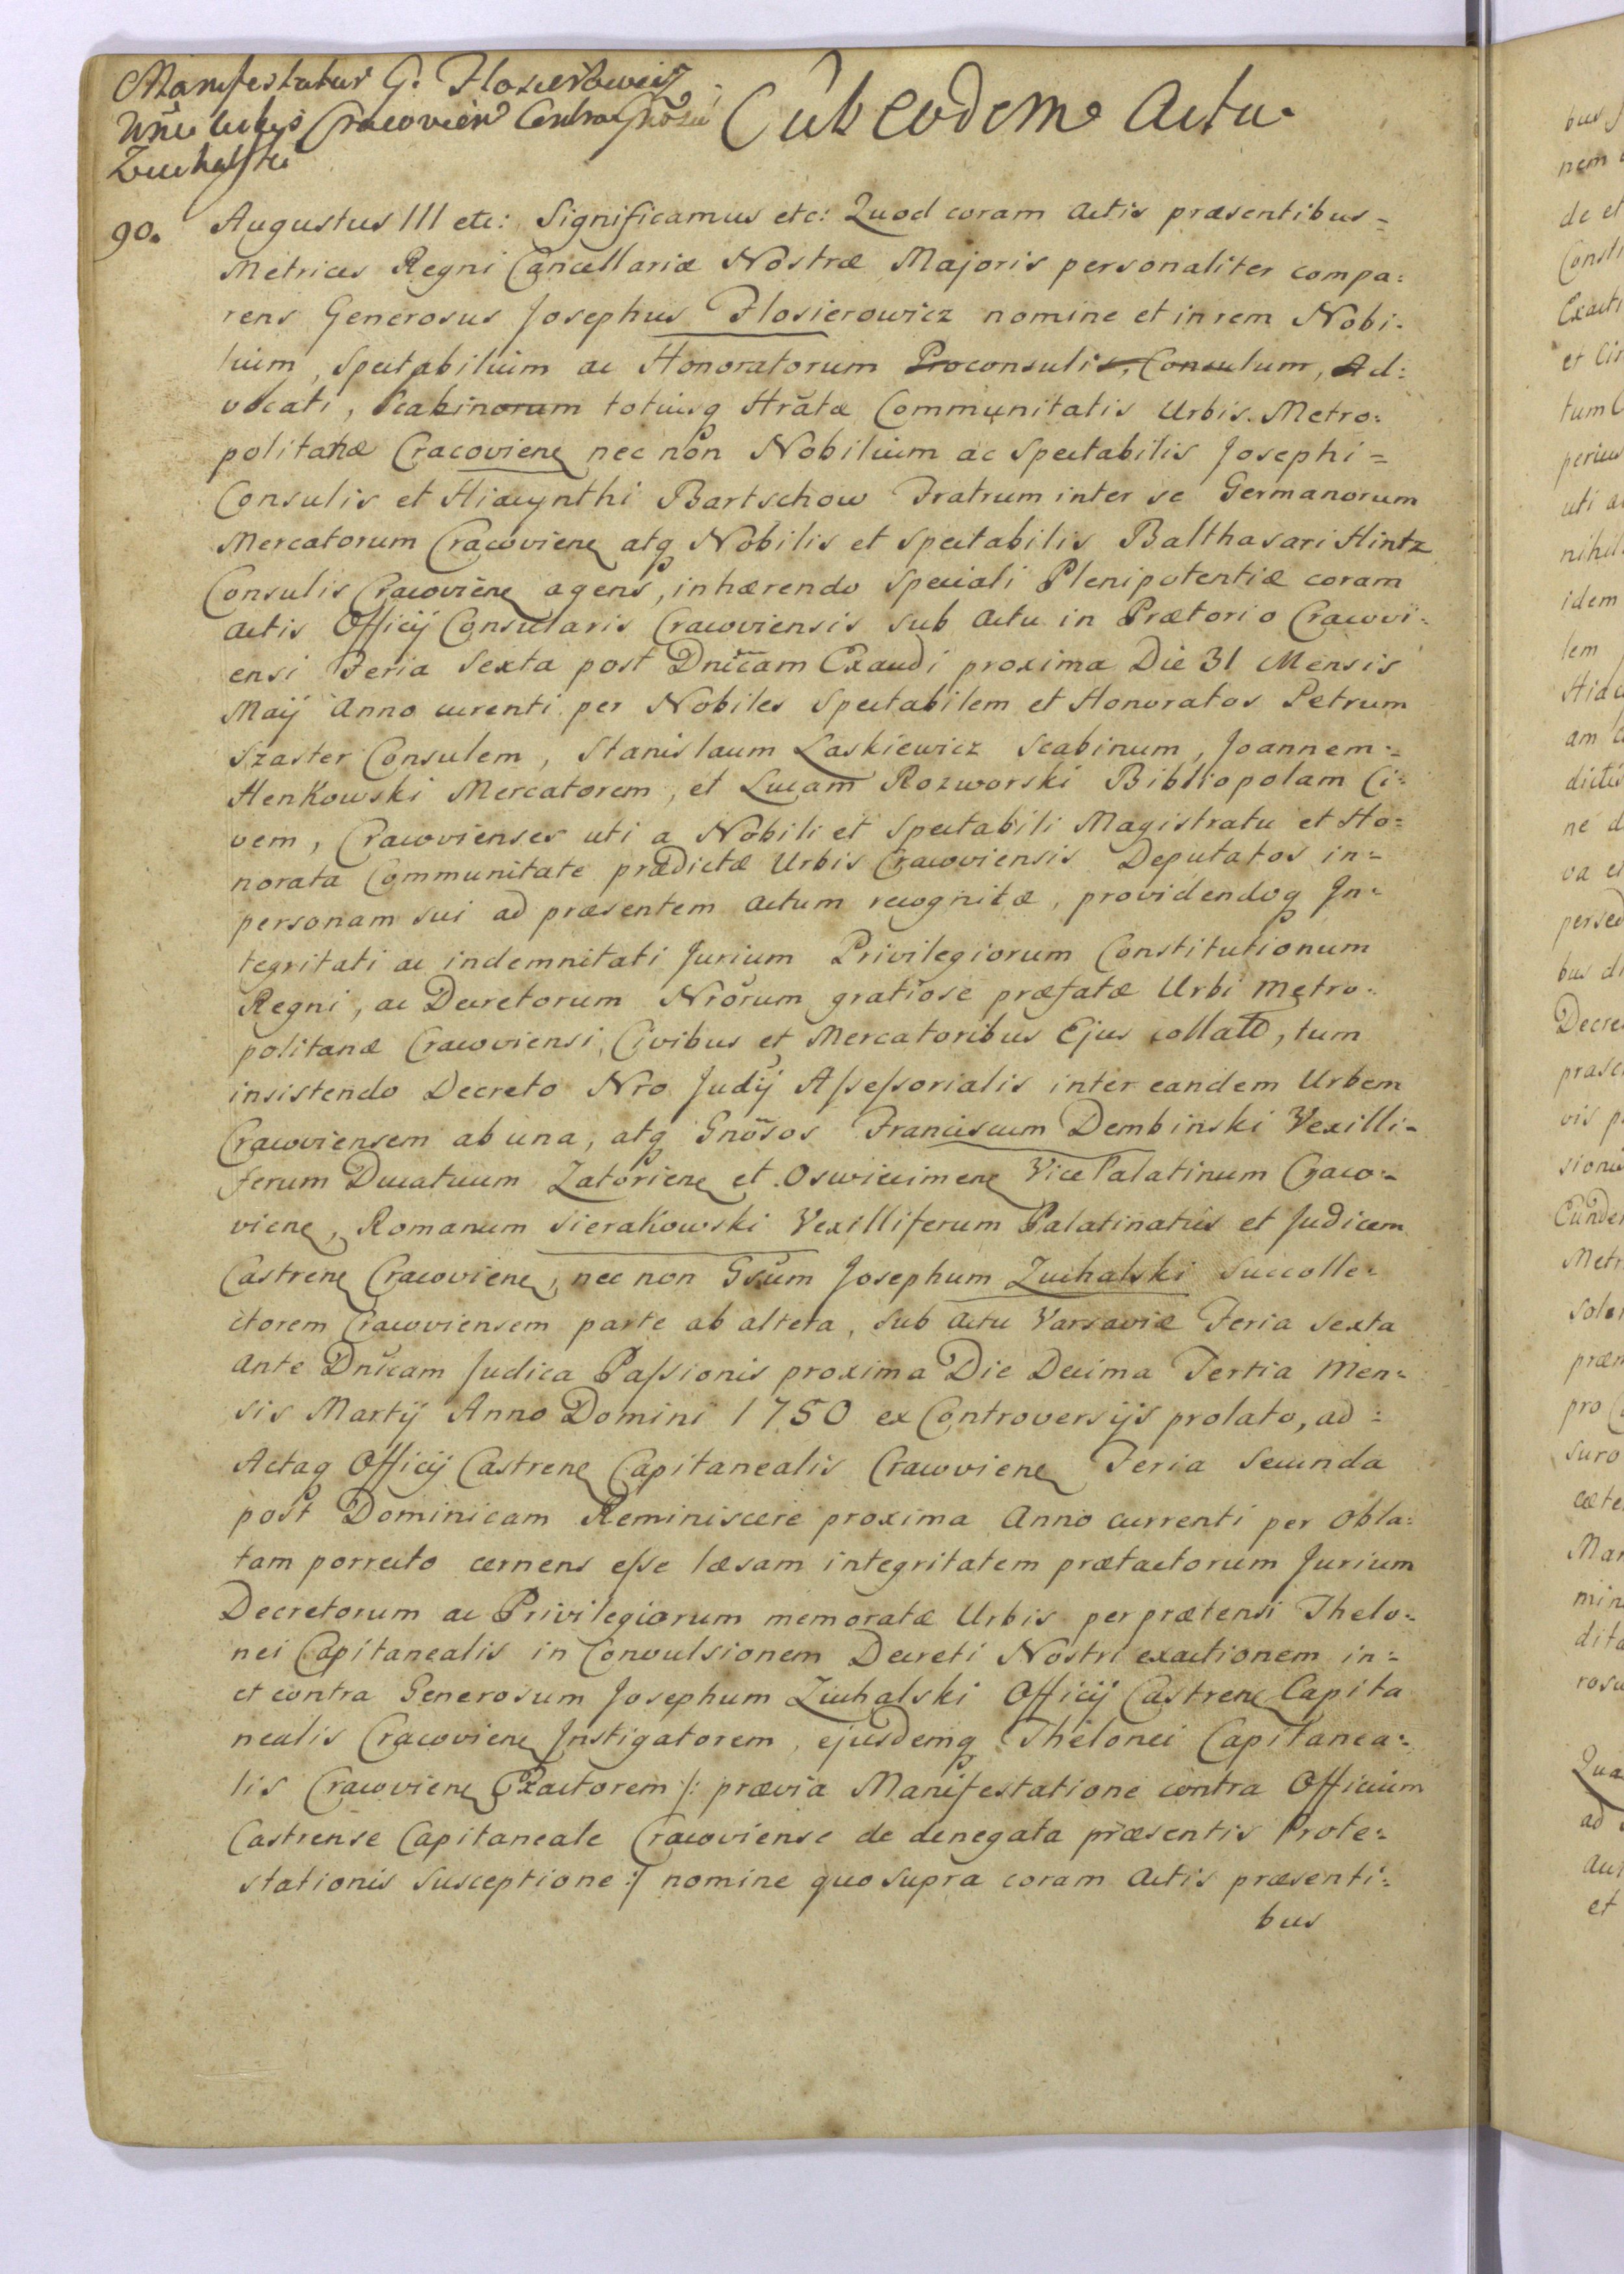 Manifestatur G. Flosierowicz
Cracovien Contra Gnosũ
Zuchalski
Sub eodem Actu
90. Augustus III etc: Significamus etc: Quod coram Actis præsentibus=
Metrices Regni Cancellariæ Nostræ Majoris personaliter compa:
rens Generosus Josephus Flosierowicz nomine et in rem Nobi-
lium, Spectabilium ac Honoratorum Proconsulis, Consulum, Ad:
vocati, Scabinorum totiusq Hrãtæ Communitatis Urbis Metro:
politanæ Cracoviene nec non Nobilium ac Spectabilis Josephi=
Consulis et Hiacynthi Bartschow Fratrum inter se Germanorum
Mercatorum Cracoviene atq Nobilis et Spectabilis Balthasari Hintz
Consulis Cracoviene agens, inhærendo Speciali Plenipotentiæ coram
Actis Officÿ Consularis Cracoviensis sub Actu in Prætorio Cracovi-
ensi Feria Sexta post Dnicam Exaudi proxima Die 31 Mensis
Maÿ Anno currenti per Nobiles Spectabilem et Honoratos Petrum
Szaster Consulem, Stanislaum Laskiewicz Scabinum, Joannem=
Henkowski Mercatorem, et Lucam Rozworski Bibliopolam Ci=
vem, Cracovienses uti a Nobili et Spectabili Magistratu et Ho=
norata Communitate prædictæ Urbis Cracoviensis Deputatos in=
personam sui ad præsentem Actum recognitæ, providendoq In=
tegritati ac indemnitati Jurium Privilegiorum Constitutionum
Regni, ac Decretorum Nrõrum gratiose præfatæ Urbi Metro-
politanæ Cracoviensi, Civibus et Mercatoribus Ejus collato, tum
insistendo Decreto Nro Judÿ Assessorialis inter eandem Urbem
Cracoviensem ab una, atq Gnõsos Franciscum Dembinski Vexilli-
ferum Ducatuum Zatoriene et Oswiecimene Vice Palatinum Craco=
viene, Romanum Sierakowski Vexilliferum Palatinatus et Judicem
Castrene Cracoviene, nec non Gsum Josephum Zuchalski Succolle=
ctorem Cracoviensem parte ab altera, sub Actu Varsaviæ Feria Sexta
ante Dnicam Judica Passionis proxima Die Decima Tertia Men=
sis Martÿ Anno Domini 1750 ex Controversÿs prolato, ad=
Actaq Officÿ Castrene Capitanealis Cracoviene Feria Secunda
post Dominicam Reminiscere proxima Anno currenti per Obla=
tam porrecto cernens esse læsam integritatem prætactorum Jurium
Decretorum ac Privilegiorum memoratæ Urbis per prætensi Thelo=
nei Capitanealis in Convulsionem Decreti Nostri exactionem in=
et contra Generosum Josephum Zuchalski Officÿ Castrene Capita
nealis Cracoviene Instigatorem, ejusdemq Thelonei Capitanea=
lis Cracoviene Exactorem /: prævia Manifestatione contra Officium
Castrense Capitaneale Cracoviense de denegata præsentis Prote=
stationis Susceptione :/ nomine quo supra coram Actis præsenti=
bus